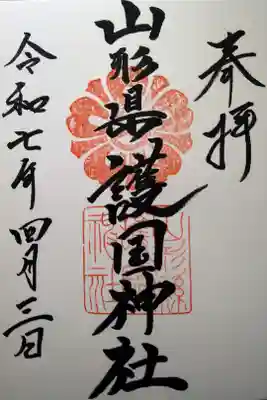 奉拝
山形県護国神社
令和七年四月三日